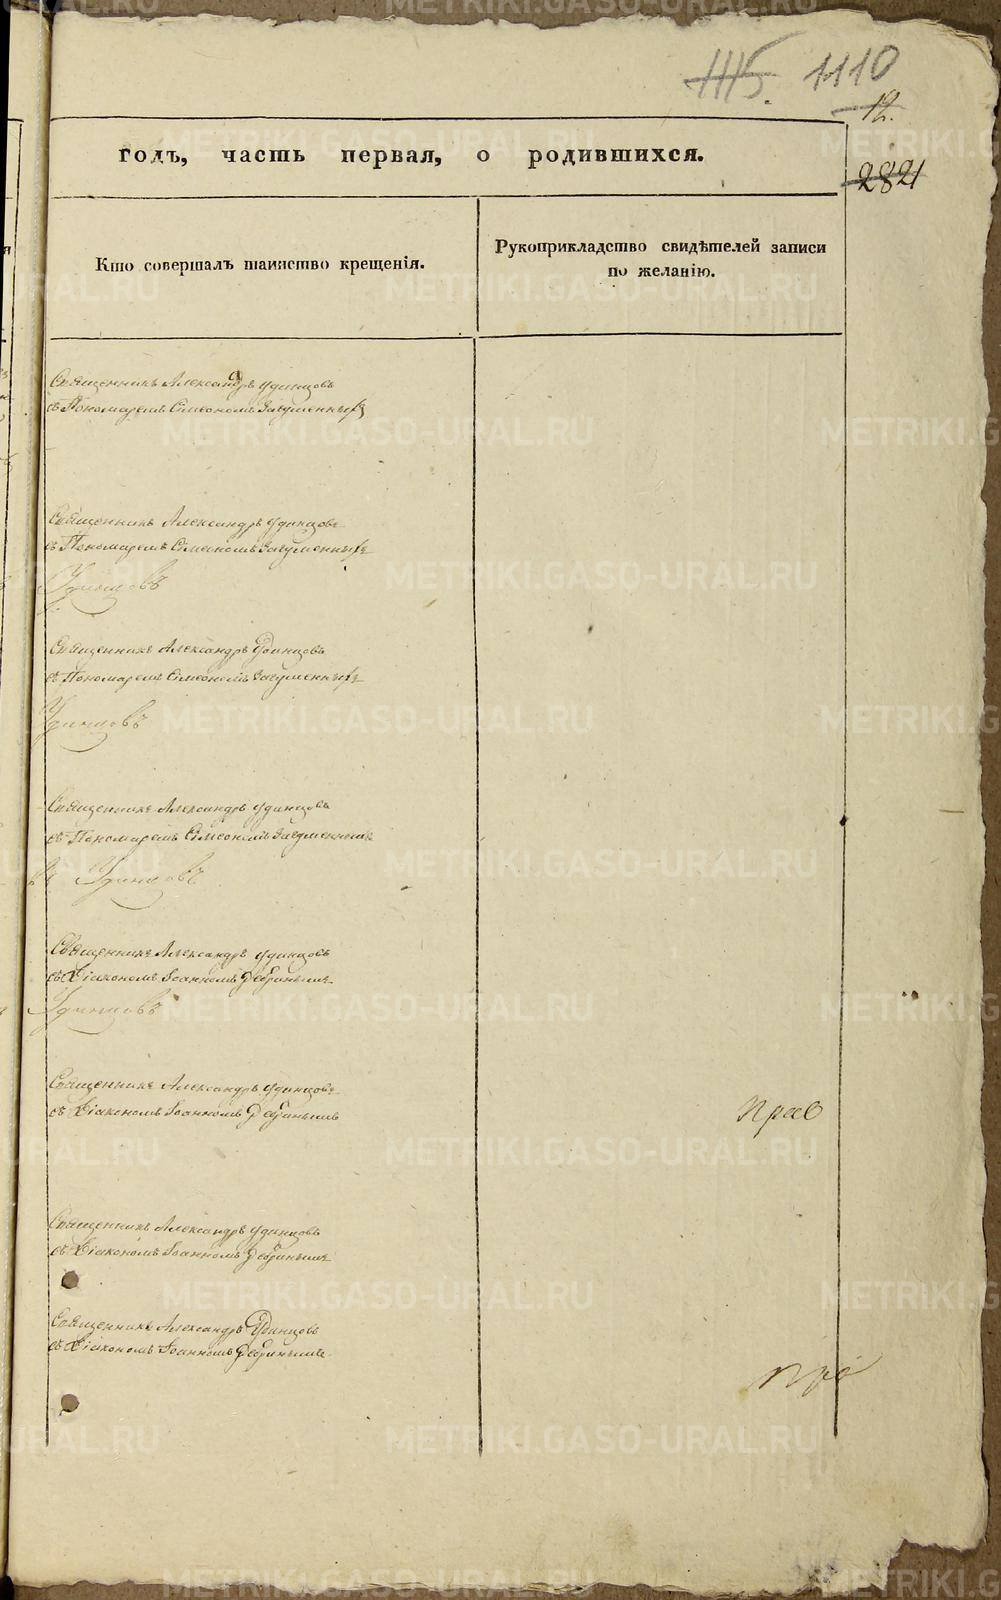 1115. 1110
12.
2821
годъ, часть первая, о родившихся.
Кто совершалъ таинство крещенія.
Рукоприкладство свидѣтелей записи
по желанію.
Священникъ Александръ Удинцовъ
съ Пономаремъ Симеономъ
Священникъ Александръ Удинцовъ
съ Пономаремъ Симеономъ
Удинцовъ
Священникъ Александръ Удинцовъ
съ Пономаремъ Симеономъ
Удинцовъ
Священникъ Александръ Удинцовъ
съ Пономаремъ Симеономъ
Удинцовъ
Священникъ Александръ Удинцовъ
съ Діакономъ Іоанномъ
Удинцовъ
Священникъ Александръ Удинцовъ
съ Діакономъ Іоанномъ
Прав
Священникъ Александръ Удинцовъ
съ Діакономъ Іоанномъ
Священникъ Александръ Удинцовъ
съ Діакономъ Іоанномъ
METRIKI.GASO-URAL.RU